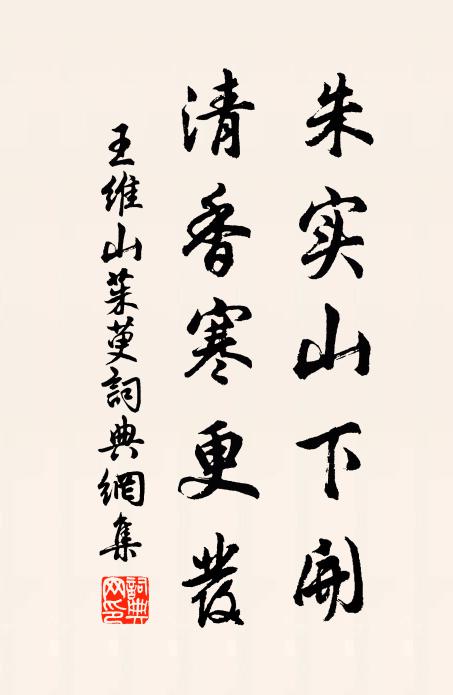 朱实山下開
清香寒更發
王維山茱萸詞典網集
詞典网印